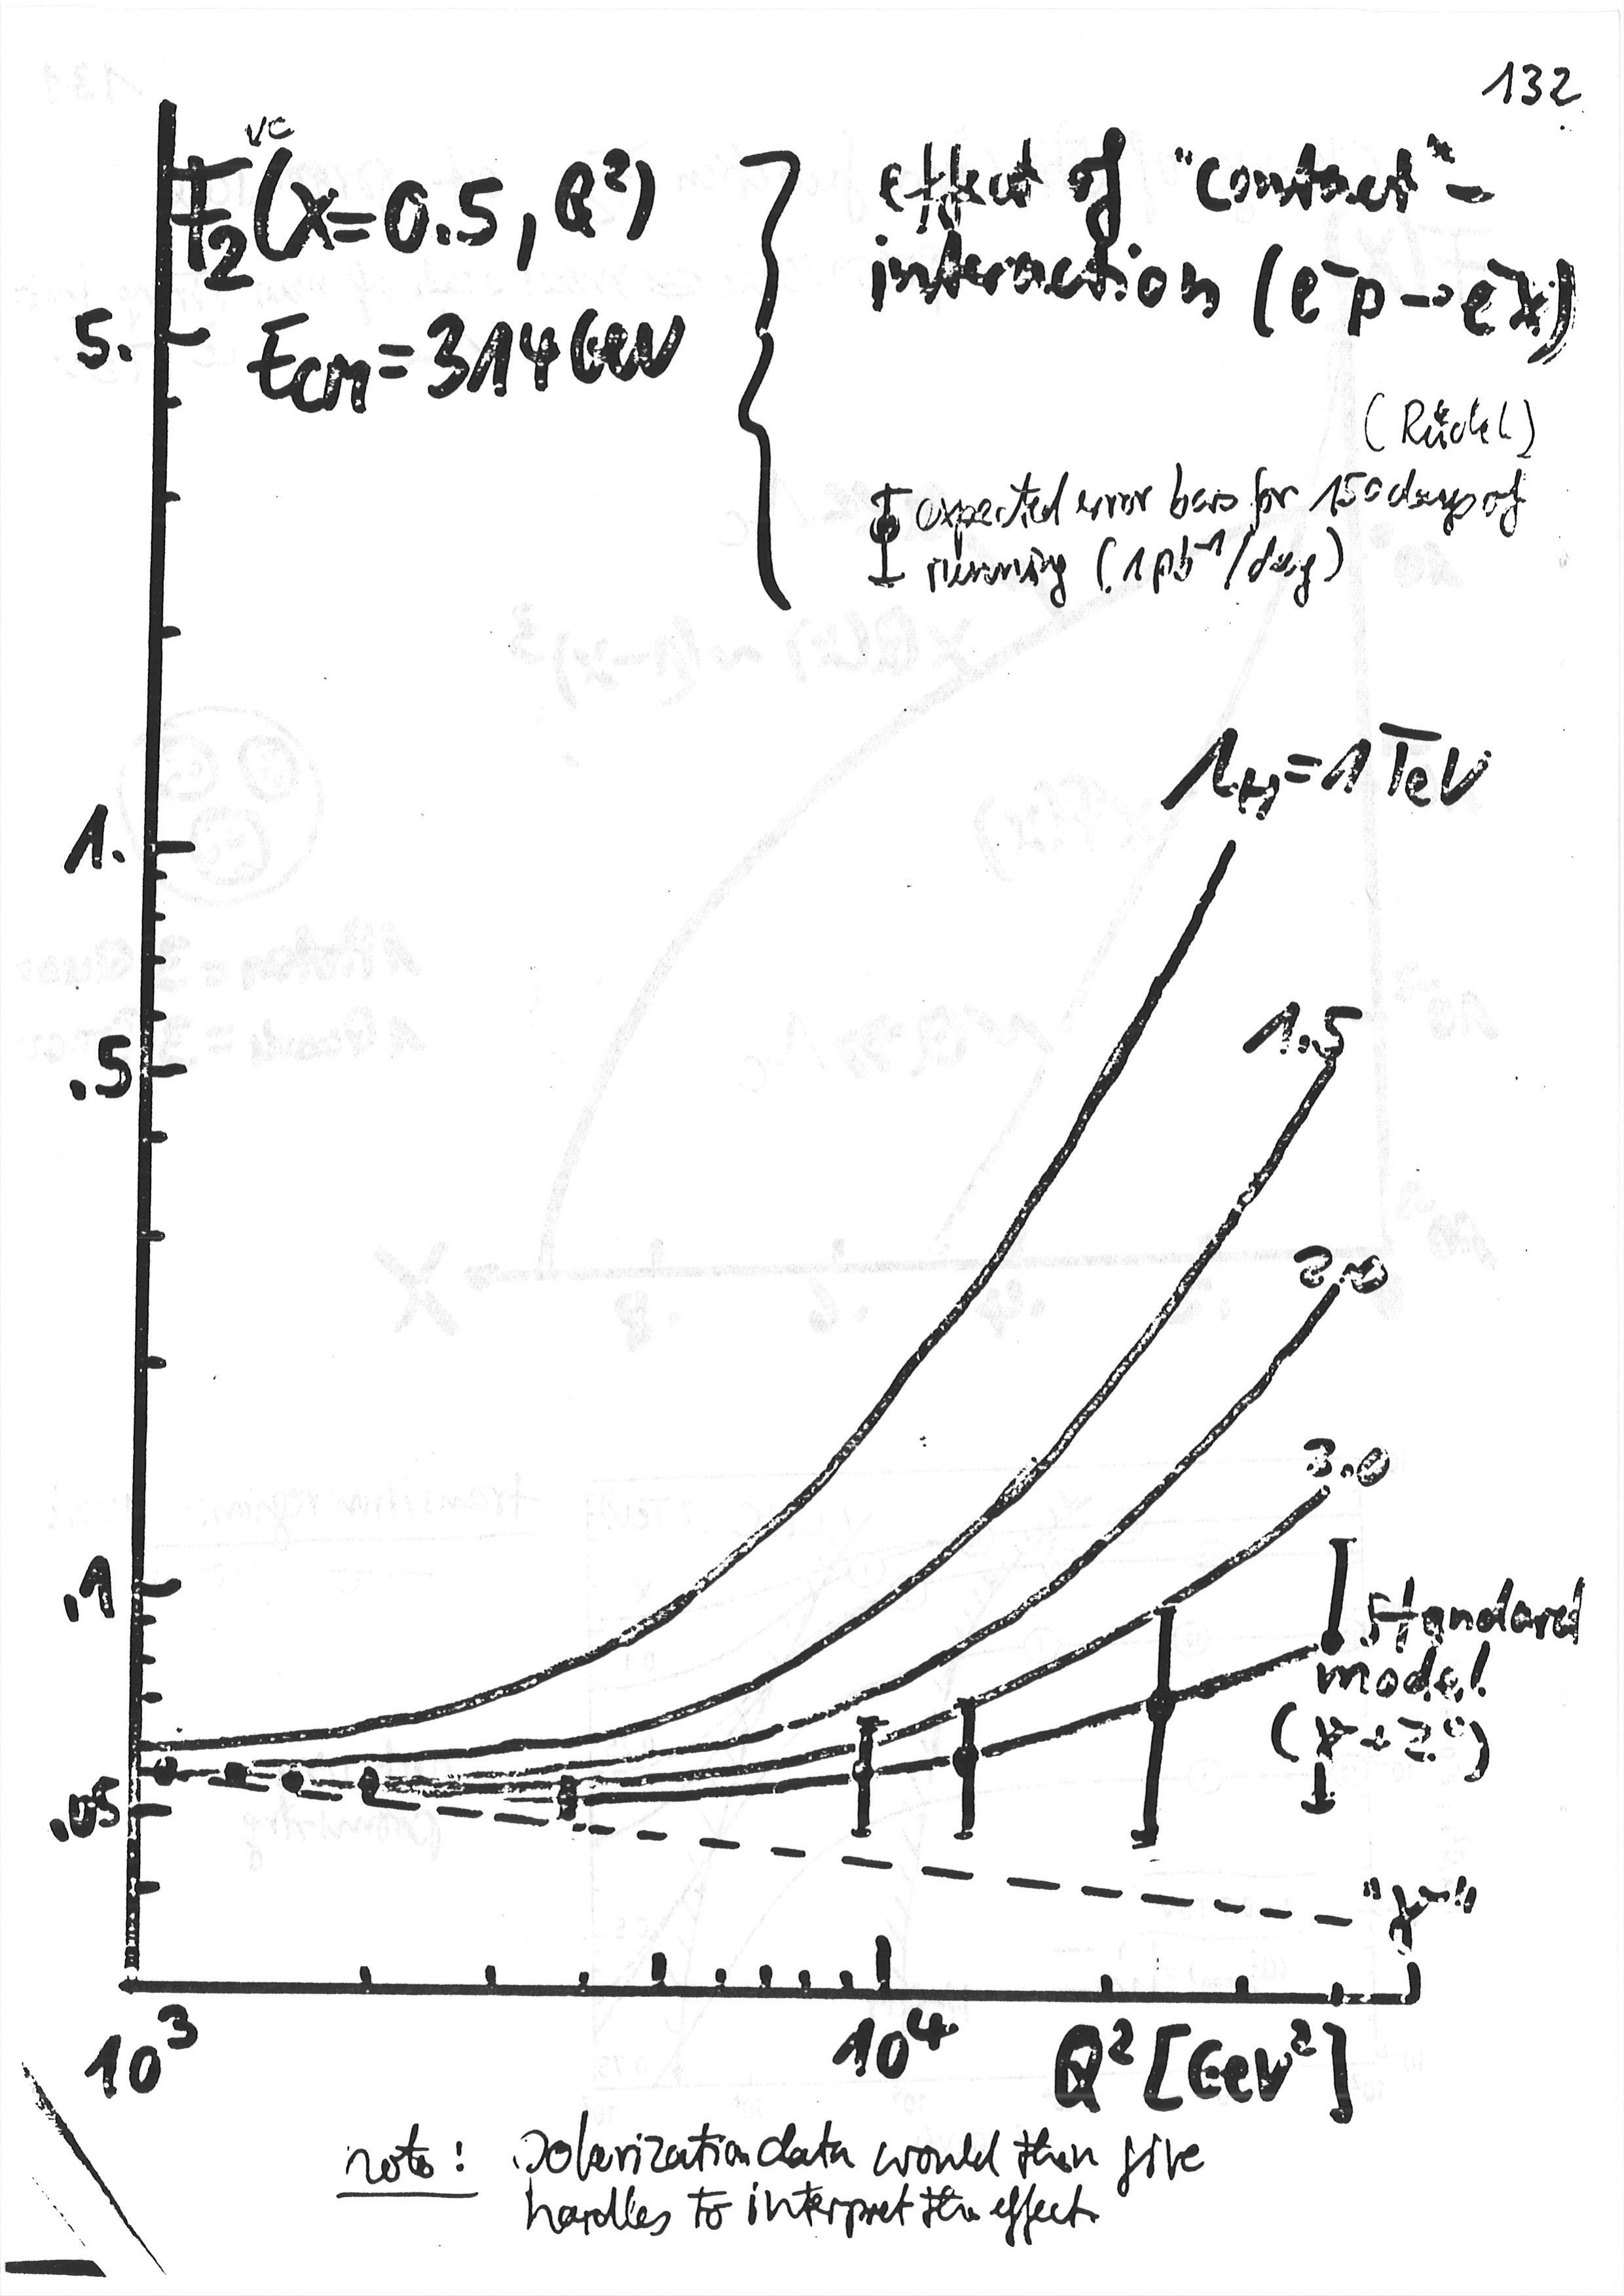 132
F₂^NC(x=0.5, Q²)
E_CM = 314 GeV
effect of "contact"-
interaction (e⁻p → e⁻x)
(Rückl)
expected error bars for 150 days of
running (1 pb⁻¹/day)
5.
1.
.5
.1
.05
Λ_H = 1 TeV
1.5
2.0
3.0
Standard
model
(γ + Z⁰)
"γ"
10³
10⁴
Q² [GeV²]
note: polarization data would then give
handles to interpret the effect.